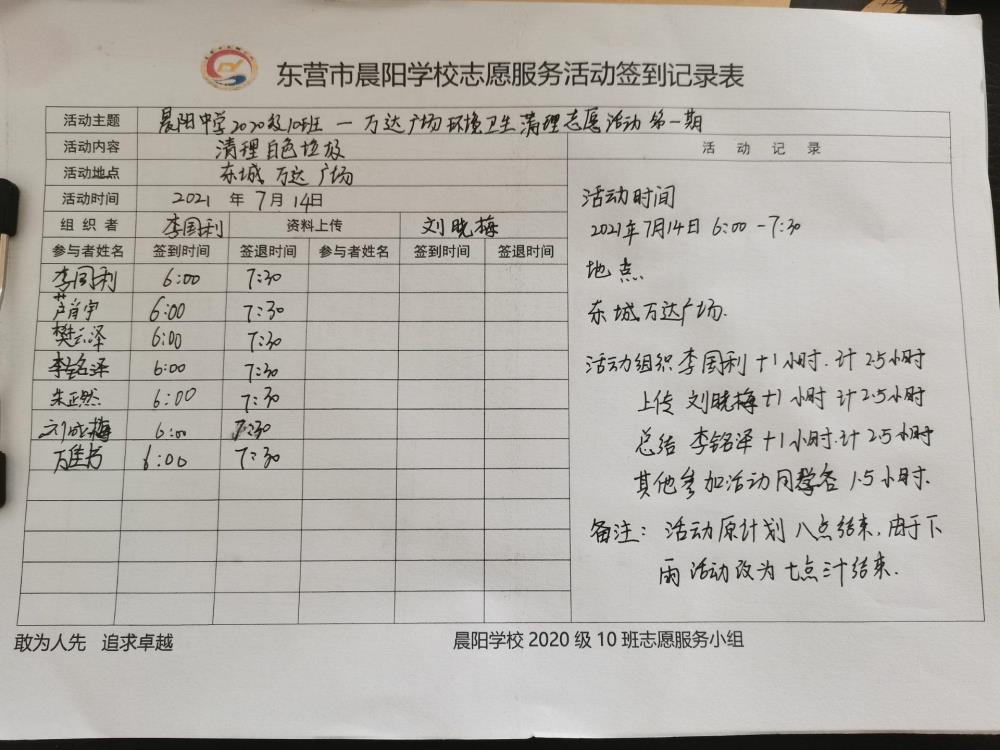 东营市晨阳学校志愿服务活动签到记录表
活动主题 晨阳中学2020级10班 — 万达广场环境卫生清理志愿活动第一期
活动内容 清理白色垃圾
活动地点 东城万达广场
活动时间 2021 年 7 月 14 日
组织者 李国利 资料上传 刘晓梅
参与者姓名 签到时间 签退时间 参与者姓名 签到时间 签退时间
李国利 6:00 7:30
芦肖宇 6:00 7:30
樊云泽 6:00 7:30
李铭泽 6:00 7:30
朱正然 6:00 7:30
刘晓梅 6:00 7:30
万佳 6:00 7:30
活动记录
活动时间
2021年7月14日 6:00 - 7:30
地点
东城万达广场.
活动组织 李国利 +1小时. 计 2.5小时
上传 刘晓梅 +1小时 计 2.5小时
总结 李铭泽 +1小时. 计 2.5小时
其他参加活动同学各 1.5小时.
备注: 活动原计划八点结束, 由于下
雨活动改为七点三十结束.
敢为人先 追求卓越
晨阳学校 2020 级 10 班志愿服务小组